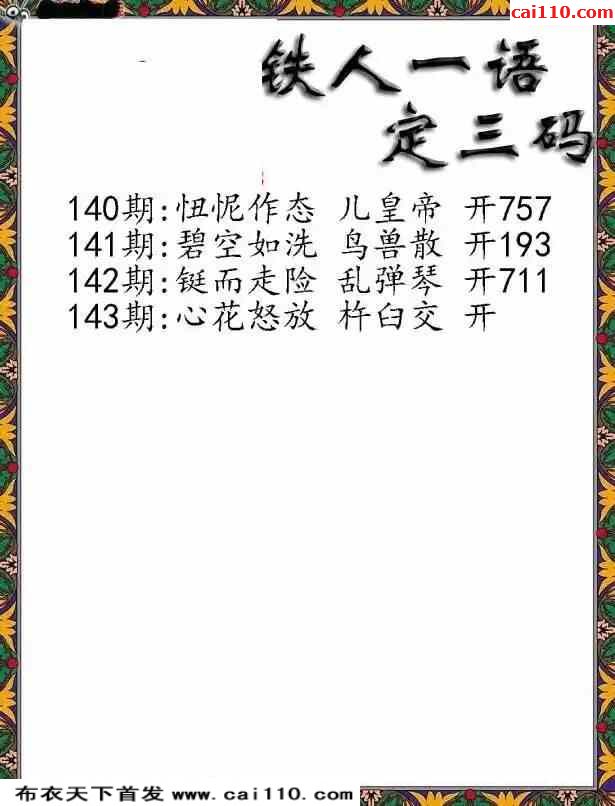 cai110.com
铁人一语
定三码
140期:忸怩作态 儿皇帝 开757
141期:碧空如洗 鸟兽散 开193
142期:铤而走险 乱弹琴 开711
143期:心花怒放 杵臼交 开
布衣天下首发 www.cai110.com